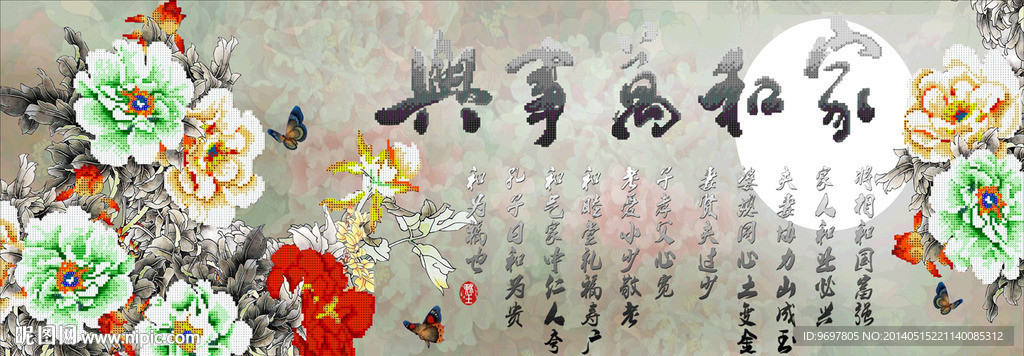 家和萬事興
将相和国富强
家人和业必兴
夫妻协力山成玉
婆媳同心土变金
妻贤夫过少
子孝父心宽
老爱小少敬老
和睦堂礼福寿广
和气家中仁人夸
孔子曰和为贵
和为福也
昵图网 www.nipic.com
ID:9697805 NO:20140515221140085312